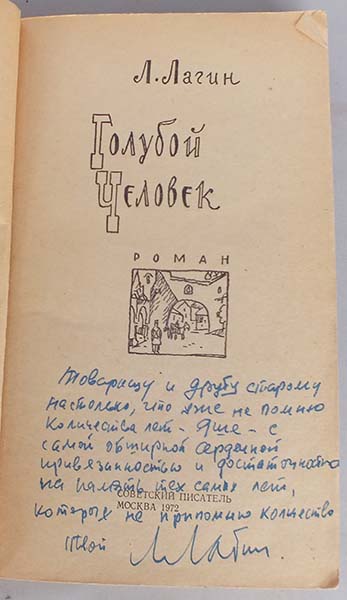 Л. Лагин
Голубой
Человек
РОМАН
Товарищу и другу старому
настолько, что уже не помню
количества лет – Яше – с
самой обширной сердечной
привязанностью и
на память тех самых лет,
СОВЕТСКИЙ ПИСАТЕЛЬ
МОСКВА 1972
которых не припомню количество
Твой Л Лагин